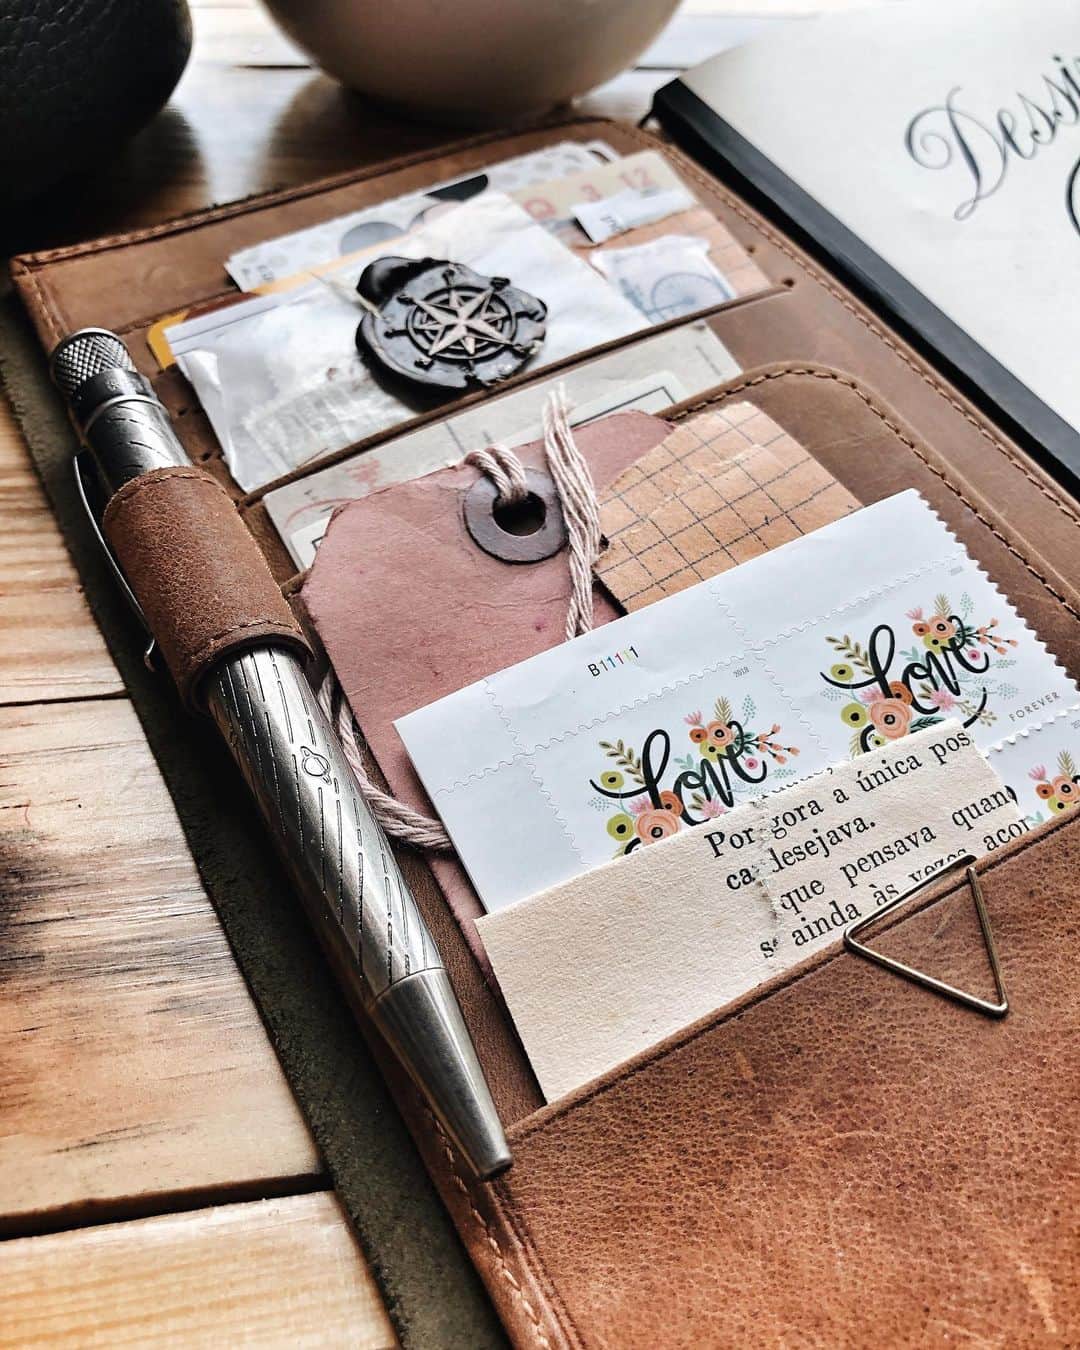 Dessi
Q 3 12
B11111
2018
love
love
FOREVER
Por gora a única pos
desejava.
que pensava quan
ainda às vezes acor